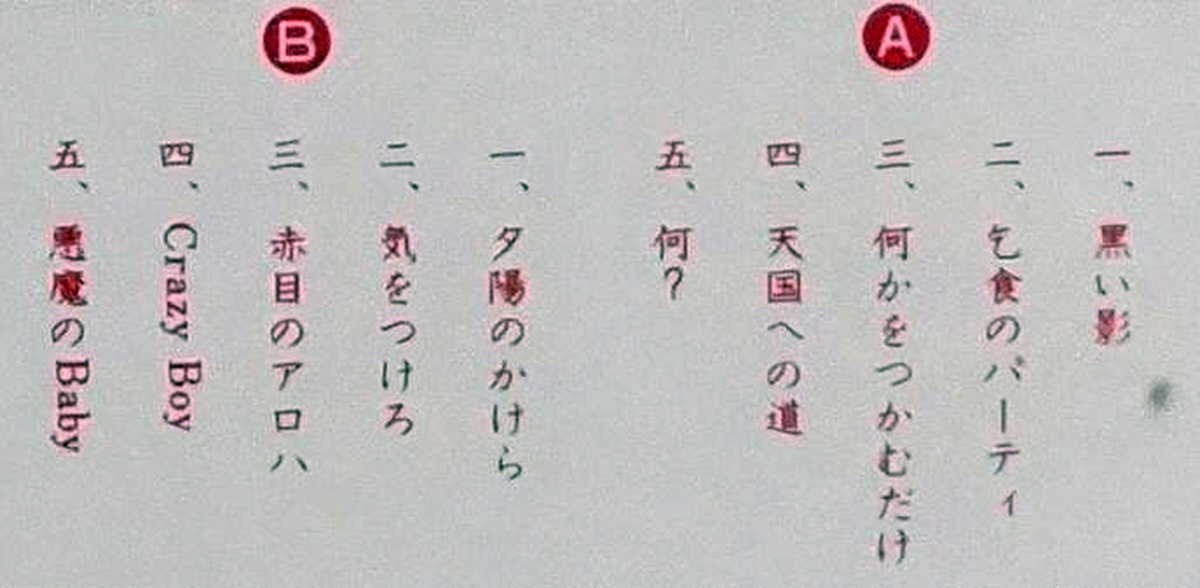 A
一、黒い影
二、乞食のパーティ
三、何かをつかむだけ
四、天国への道
五、何?
B
一、夕陽のかけら
二、気をつけろ
三、赤目のアロハ
四、Crazy Boy
五、悪魔のBaby